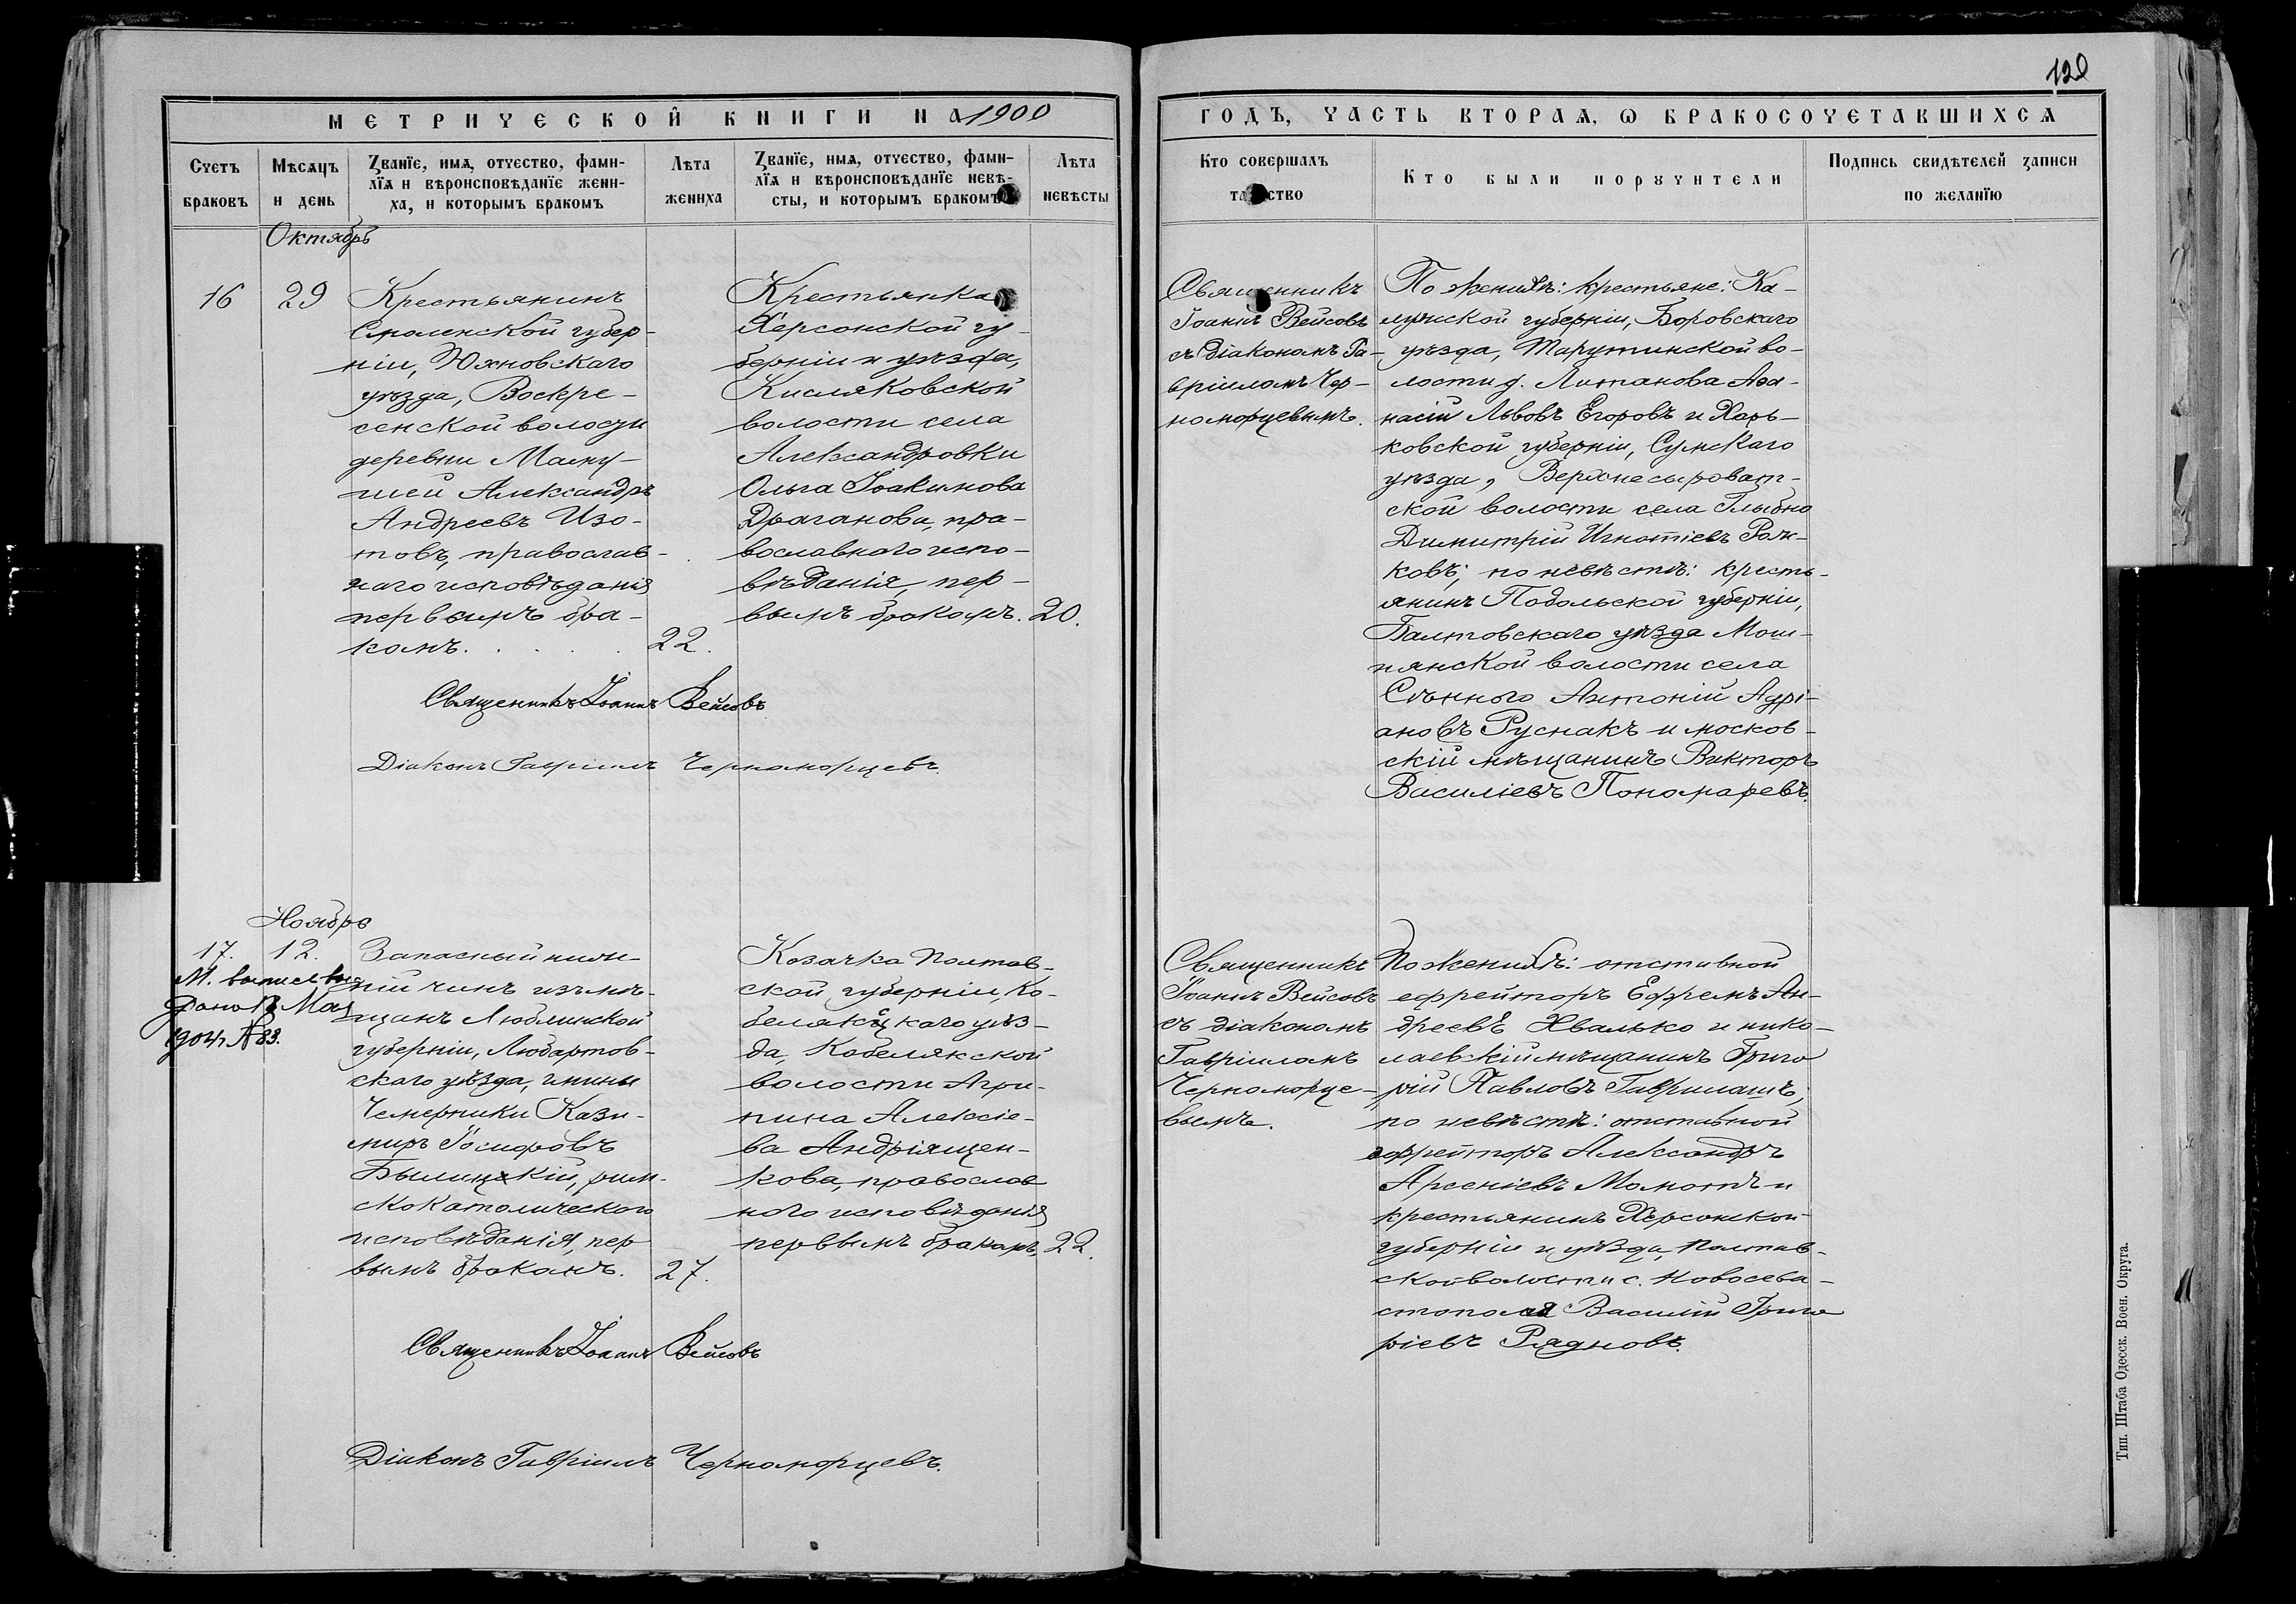 120
МЕТРИЧЕСКОЙ КНИГИ НА 1900
ГОДЪ, ЧАСТЬ ВТОРАѦ, Ѡ БРАКОСОЧЕТАВШИХСѦ
Счетъ
браковъ
Мѣсяцъ
и день
Званїе, имѧ, отчество, фами-
лїѧ и вѣроисповѣданїе жени-
ха, и которымъ бракомъ
Лѣта
жениха
Званїе, имѧ, отчество, фами-
лїѧ и вѣроисповѣданїе невѣ-
сты, и которымъ бракомъ
Лѣта
невѣсты
Кто совершалъ
таинство
Кто были поручители
Подпись свидѣтелей записи
по желанїю
Октябрь
16
29
Крестьянинъ
Смоленской губер-
ніи, Юхновскаго
уѣзда, Воскре-
сенской волости
деревни
Александръ
Андреевъ Изо-
товъ, православ-
наго исповѣданія
первымъ бра-
комъ.
22.
Крестьянка
Херсонской гу-
берніи и уѣзда,
Кисляковской
волости села
Александровки
Ольга Іоакимова
Драганова, пра-
вославнаго испо-
вѣданія, пер-
вымъ бракомъ.
20.
Священникъ Іоаннъ Вейсовъ
Діаконъ Гавріилъ Черноморцевъ.
Священникъ
Іоаннъ Вейсовъ
съ діакономъ Га-
вріиломъ Чер-
номорцевымъ.
По женихѣ: крестьяне: Ка-
лужской губерніи, Боровскаго
уѣзда, Тарутинской во-
лости д. Литанова Аѳа-
насій Львовъ Егоровъ и Харь-
ковской губерніи, Сумскаго
уѣзда, Верхнесыроват-
ской волости села Глыбно
Димитрій Игнатіевъ Рож-
ковъ; по невѣстѣ: кресть-
янинъ Подольской губерніи,
Балтовскаго уѣзда Мош-
нянской волости села
Сѣнного Антоній Адрі-
ановъ Руснакъ и москов-
скій мѣщанинъ Викторъ
Василіевъ Пономаревъ.
Ноябрь
17.
12.
М. выпись
Дано 13 Мая
1904 г. № 83.
Запасный ниж-
ній чинъ изъ мѣ-
щанъ Люблинской
губерніи, Любартов-
скаго уѣзда, гмины
Чемерники Кази-
миръ Іосифовъ
Былицкій, рим-
скокатолическаго
исповѣданія, пер
вымъ бракомъ.
27.
Козачка Полтав-
ской губерніи, Ко-
белякскаго уѣз-
да Кобелякской
волости Агри-
пина Алексіе-
ва Андріящен-
кова, православ
наго исповѣданія
первымъ бракомъ,
22.
Священникъ Іоаннъ Вейсовъ
Діаконъ Гавріилъ Черноморцевъ.
Священникъ
Іоаннъ Вейсовъ
съ діакономъ
Гавріиломъ
Черноморце-
вымъ.
По женихѣ: отставной
ефрейторъ Ефремъ Ан-
дреевъ Хвалько и нико-
лаевскій мѣщанинъ Григо
рій Павловъ Гаврилашъ;
по невѣстѣ: отставной
ефрейторъ Александръ
Арсеніевъ Мамотъ и
крестьянинъ Херсонской
губерніи и уѣзда, Полтав-
ской волости с. Новосева-
стополя Василій Григо
ріевъ Рядновъ.
Тип. Штаба Одесск. Воен. Округа.